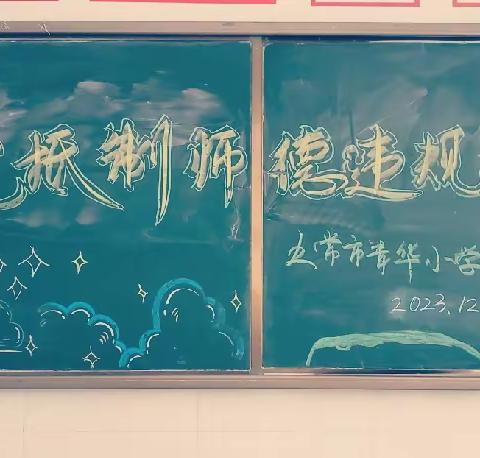 抵制师德违规
五常市菁华小学
2023.12